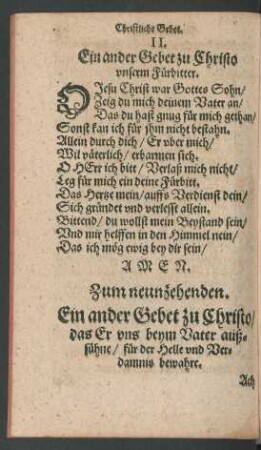 Christliche Gebet.
II.
Ein ander Gebet zu Christo
vnserm Fürbitter.
O Jesu Christ war Gottes Sohn/
Zeig du mich deinem Vater an/
Das du hast gnug für mich gethan/
Sonst kan ich für jhm nicht bestahn.
Allein durch dich / Er vber mich/
Wil väterlich/ erbarmen sich.
O HErr ich bitt/ Verlaß mich nicht/
Leg für mich ein deine Fürbitt.
Das Hertze mein/ auffs Verdienst dein/
Sich gründet vnd verlesst allein.
Bittend/ du wollst mein Beystand sein/
Vnd mir helffen in den Himmel nein/
Das ich mög ewig bey dir sein/
AMEN.
Zum neunzehenden.
Ein ander Gebet zu Christo/
das Er vns beym Vater auß-
sühne/ für der Helle vnd Ver-
damnis bewahre.
Ach